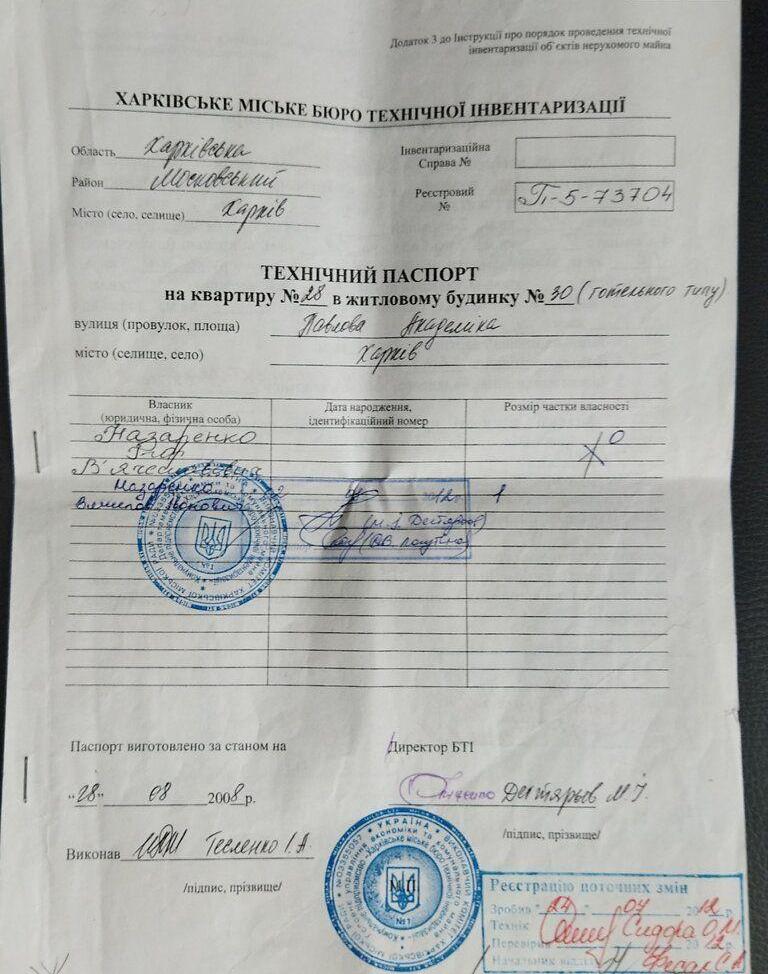 Додаток 3 до Інструкції про порядок проведення технічної
інвентаризації об'єктів нерухомого майна
ХАРКІВСЬКЕ МІСЬКЕ БЮРО ТЕХНІЧНОЇ ІНВЕНТАРИЗАЦІЇ
Область Харківська
Район Московський
Місто (село, селище) Харків
Інвентаризаційна
Справа №
Реєстровий
№ П-5-73704
ТЕХНІЧНИЙ ПАСПОРТ
на квартиру № 28 в житловому будинку № 30 (готельного типу)
вулиця (провулок, площа) Павлова Академіка
місто (селище, село) Харків
Власник
(юридична, фізична особа)
Дата народження,
ідентифікаційний номер
Розмір частки власності
Назаренко
Ігор
В'ячеславовна
Назаренко
1
Паспорт виготовлено за станом на
"28" 08 2008 р.
Виконав Тесленко І.А.
/підпис, прізвище/
Директор БТІ
Дегтярьов М.І.
/підпис, прізвище/
УКРАЇНА
№1
Реєстрацію поточних змін
Зробив "24" 04 2012 р.
Технік Сидора О.М.
Перевірив 2012 р.
Начальник відділу